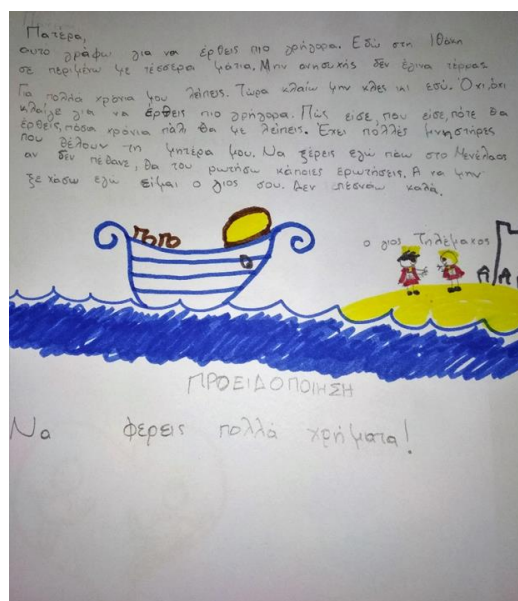 Πατέρα,
αυτό γράφω για να έρθεις πιο γρήγορα. Εδώ στη Ιθάκη
σε περιμένω με τέσσερα μάτια. Μην ανησυχής δεν έγινα τέρρας.
Για πολλά χρόνια μου λείπεις. Τώρα κλαίω μην κλες και εσύ. Όχι, όχι
κλαίγε για να έρθεις πιο γρήγορα. Πώς είσε, που είσε, πότε θα
έρθεις, πόσα χρόνια πάλι θα με λείπεις. Έχει πολλές μνηστήρες
που θέλουν τη μητέρα μου. Να ξέρεις εγώ πάω στο Μενέλαος
αν δεν πέθανε, θα του ρωτήσω κάποιες ερωτήσεις. Α να μην
ξεχάσω εγώ είμαι ο γιος σου. Δεν περνάω καλά.
ο γιος Τηλέμαχος
ΠΡΟΕΙΔΟΠΟΙΗΣΗ
Να φέρεις πολλά χρήματα!